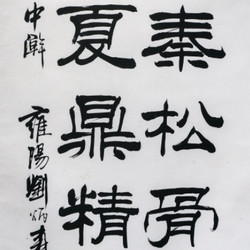 秦松骨
夏鼎精
中斛
雍陽劉炳森